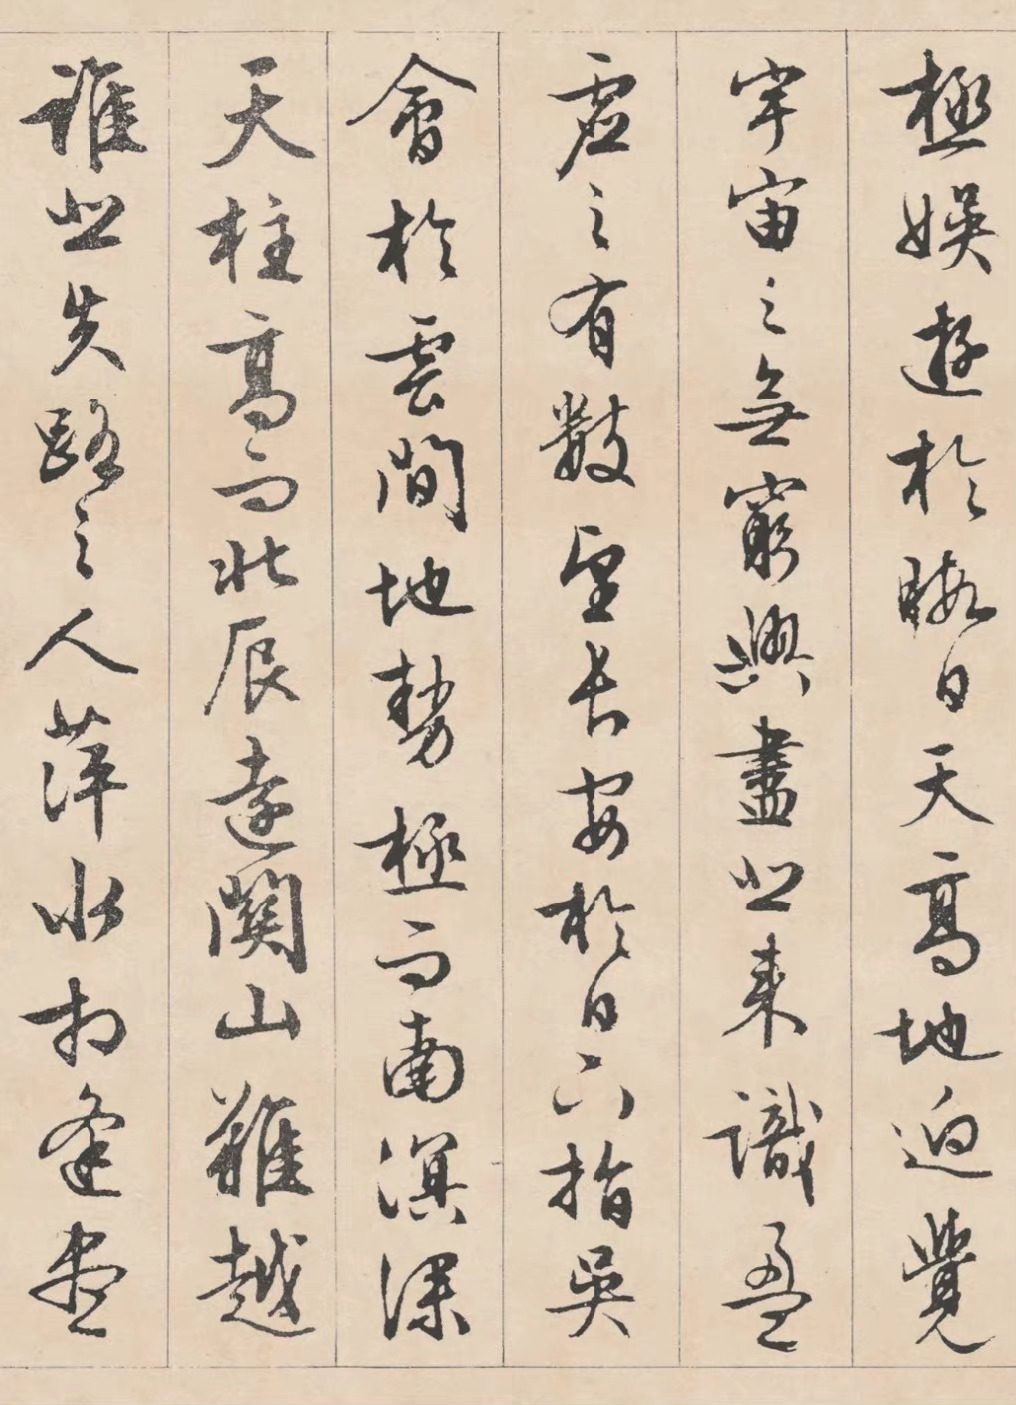 極娛遊於暇日天高地迥覺
宇宙之無窮興盡悲來識盈
虛之有數望長安於日下指吳
會於雲間地勢極而南溟深
天柱高而北辰遠關山難越
誰悲失路之人萍水相逢盡